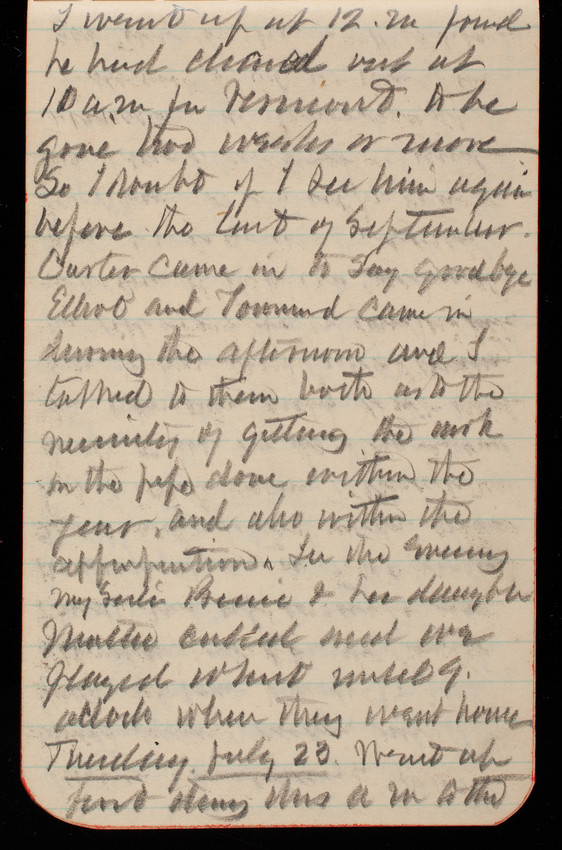 I went up at 12. m found
he had cleared out at
10 a.m for Vermont. to be
gone two weeks or more
So I doubt if I see him again
before the last of September.
Carter came in to Say goodbye
Elliot and Townsend came in
during the afternoon and I
talked to them both as to the
necessity of getting the work
on the pipe done within the
year, and also within the
appropriation. In the Evening
my Bessie & her daughter
Mattie called and we
played whist until 9.
oclock when they went home
Tuesday July 23. Went up
first thing this a m to the